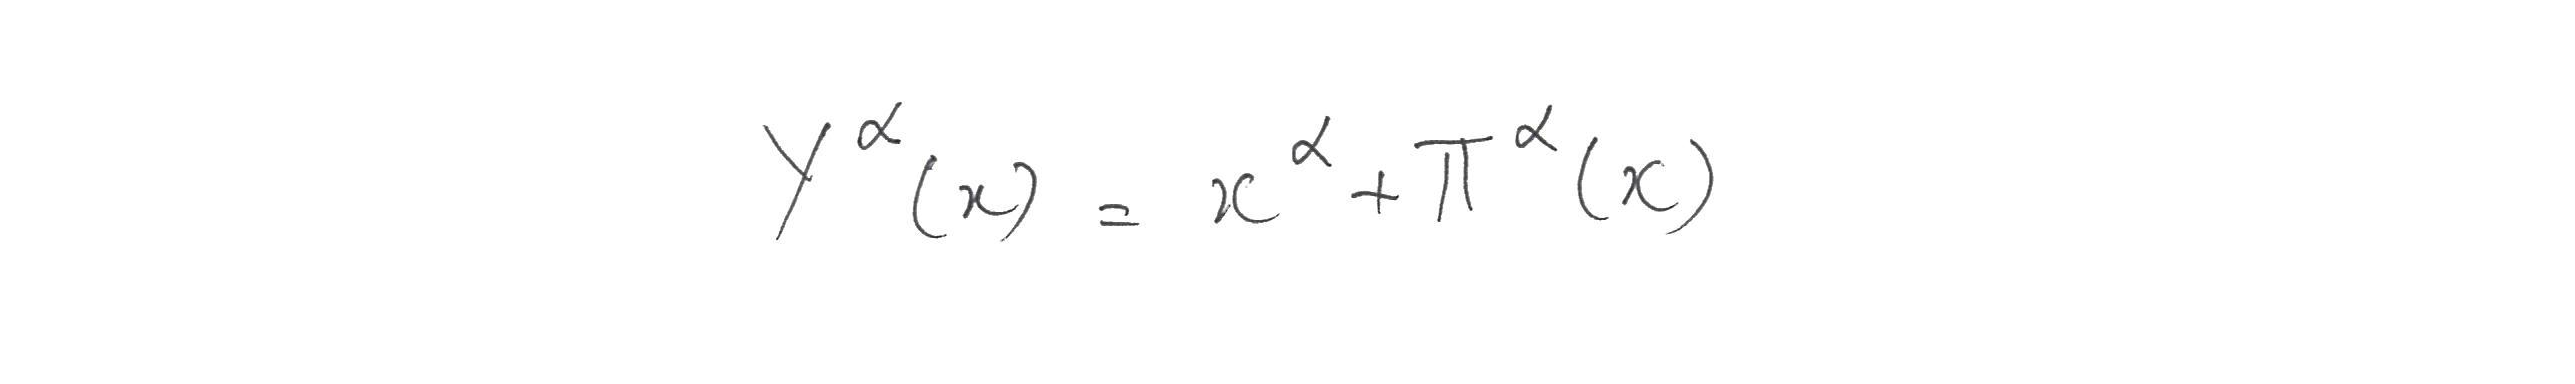 Y^α(x) = x^α + π^α(x)